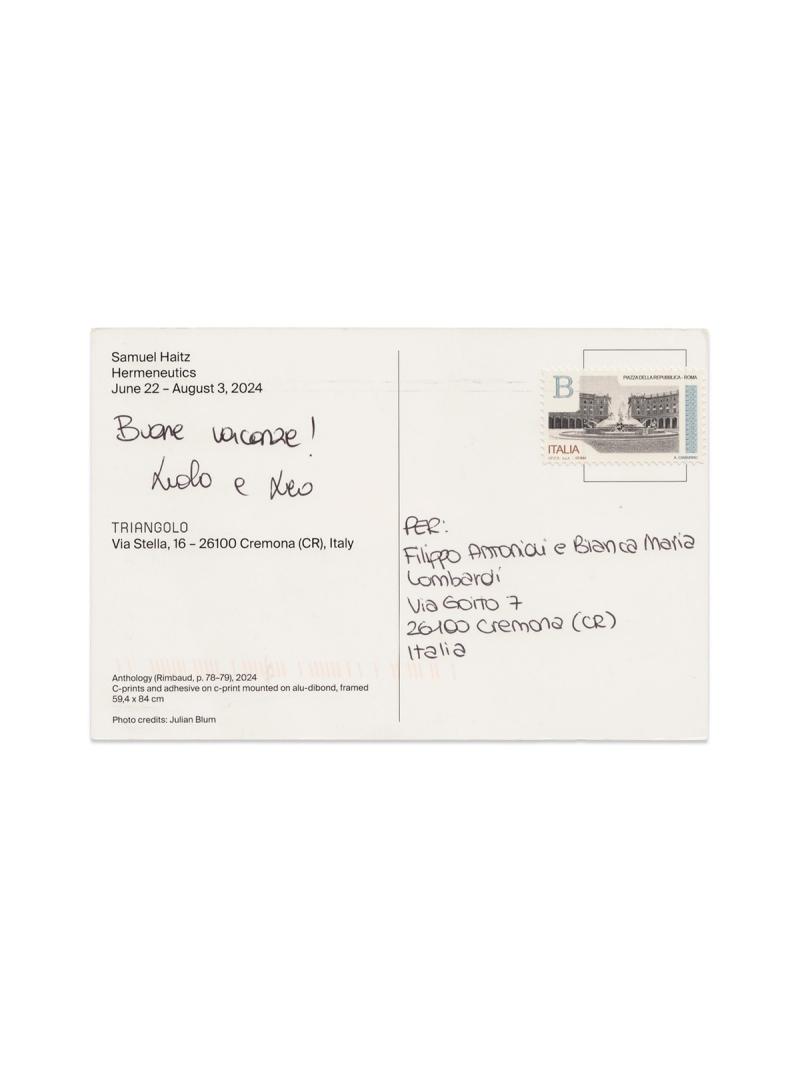 Samuel Haitz
Hermeneutics
June 22 – August 3, 2024
Buone vacanze!
e Leo
TRIANGOLO
Via Stella, 16 – 26100 Cremona (CR), Italy
Anthology (Rimbaud, p. 78–79), 2024
C-prints and adhesive on c-print mounted on alu-dibond, framed
59,4 x 84 cm
Photo credits: Julian Blum
B
PIAZZA DELLA REPUBBLICA - ROMA
ITALIA
PER:
Filippo Antonioli e Bianca Maria
Lombardi
Via Goito 7
26100 Cremona (CR)
Italia